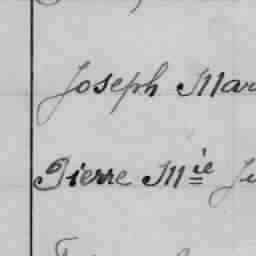 Joseph Mar
Pierre Mie